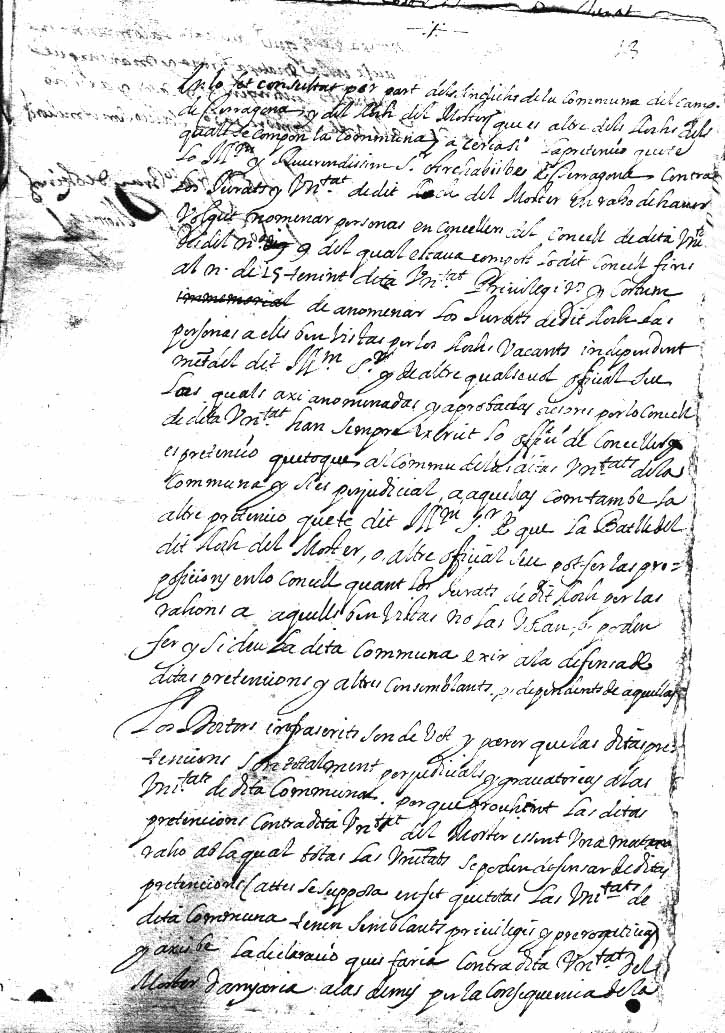 13
En lo fet consultat per part dels Sindichs de la Communa del Camp
de Tarragona, y del lloch del Morter (que es altre dels llochs dels
quals se compon la Communa) a cerca de la pretenció que te
lo Illm. y Reverendissim Sr Archabisbe de Tarragona contra
los Jurats y Vnitat de dit Loch del Morter en raho de haver
volgut nomenar personas en Concellers del Concell de dita Vnit
del n. 9 del qual estava compost lo dit Concell fins
al n. de 15 tenint dita Vnitat Privilegi y Costum
immemorial de anomenar los Jurats de dit lloch las
personas a ells ben vistas per los llochs vacants independent
ment del dit Illm Sr y de altre qualsevol official seu
Las quals axi anomenadas y aprobadas despres per lo Concell
de dita Vnitat han sempre exercit lo offici de Concellers
es pretenció que toque al Commu de las ditas Vnitats de la
Communa y si es perjudicial a aquellas com tambe la
altre pretenció que te dit Illm Sr que lo Batlle del
dit lloch del Morter, o altre official seu pot fer las pro=
posicions en lo Concell quant los Jurats de dit lloch per las
rahons a aquells ben vistas no las volan, o poden
fer y si deu la dita Communa exir a la defensa de
ditas pretencions y altres consemblants, y dependents de aquellas
Los Doctors infrascrits son de vot y parer que las ditas pre=
tencions son totalment perjudicials y gravatorias a las
Vnitats de dita Communa. perque provehint las ditas
pretencions contra dita Vnitat del Morter essent vna matexa
raho ab la qual totas las Vnitats se poden defensar de ditas
pretencions (attes se supposa en fet que totas las Vnitats de
dita Communa tenen semblants privilegis y prerogativas)
y axi be la declaració ques faria contra dita Vnitat del
Morter danyaria a las demes per la consequencia de la